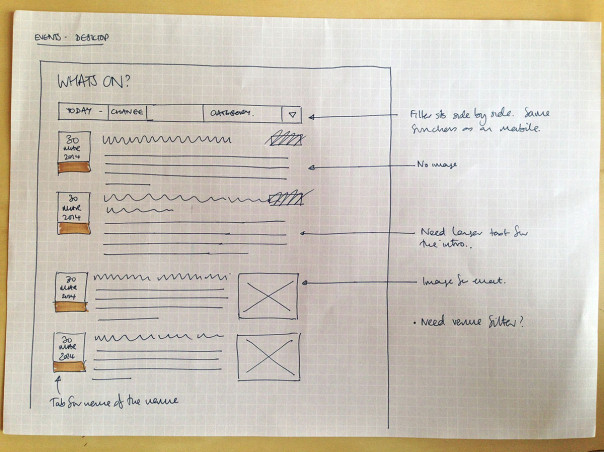 EVENTS - DESKTOP
WHATS ON?
TODAY - CHANGE CATEGORY.
Filter sits side by side. Same
functions as on mobile.
30
MAR
2014
No image
30
MAR
2014
Need larger text for
the intro..
30
MAR
2014
Image for event.
• Need venue filter?
30
MAR
2014
Tab for name of the venue